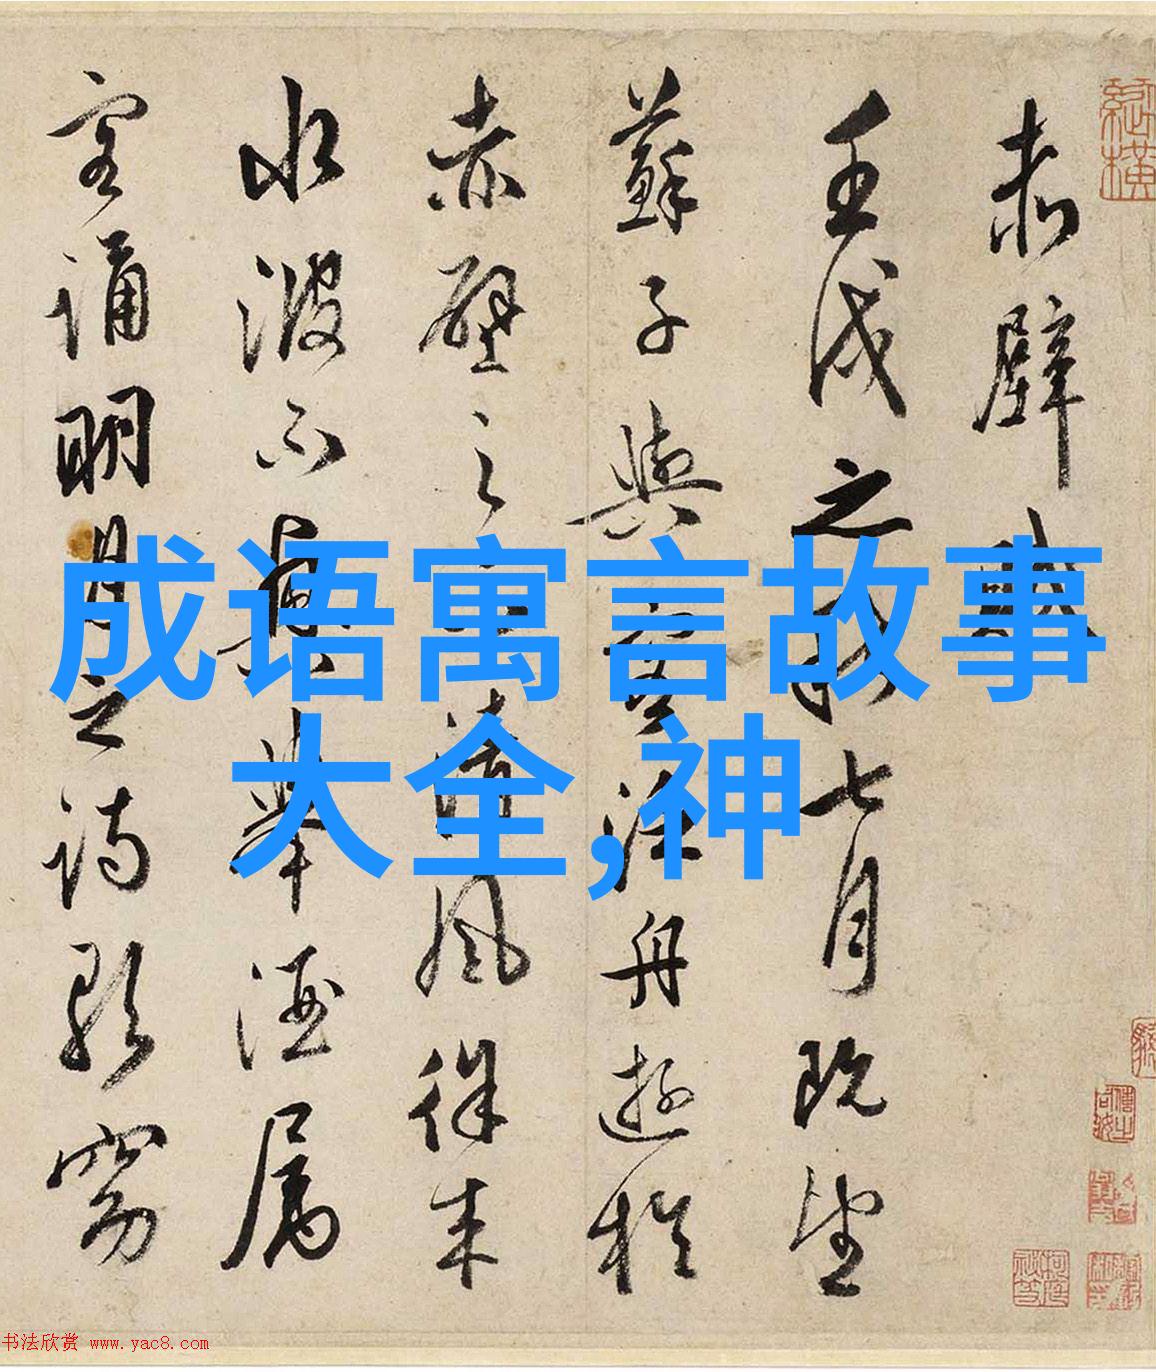 赤壁賦
壬戌之秋七月既望
蘇子與客泛舟遊於
赤壁之下清風徐来
水波不興舉酒屬
客誦明月之詩歌窈
成语寓言故事
大全,神
书法欣赏 www.yac8.com